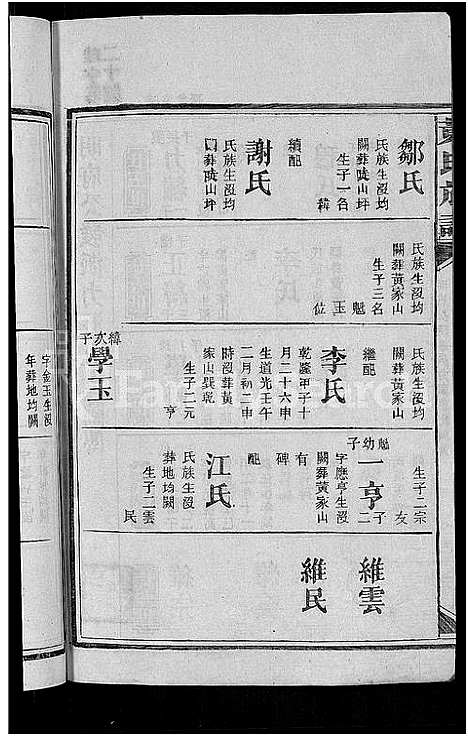 鄒氏
氏族生沒均
闕葬陵山坪
生子一名
緯
續配
謝氏
氏族生沒均
闕葬陵山坪
氏族生沒均
闕葬黃家山
生子三名
魁
玉
位
氏族生沒均
闕葬黃家山
繼配
李氏
乾隆甲子十
月二十六申
生道光壬午
二月初二申
時沒葬黃
家山巽
生子二元
亨
緯次子
學玉
字金玉生沒
年葬地均闕
生子二宗
友
魁幼子
一亨
子二
字應亨生沒
闕葬黃家山
有
碑
配
江氏
氏族生沒均
葬地均闕
生子二雲
民
維雲
維民